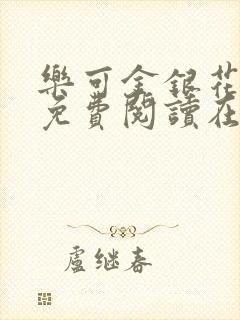 樂可金銀花
免費閱讀在
盧继春